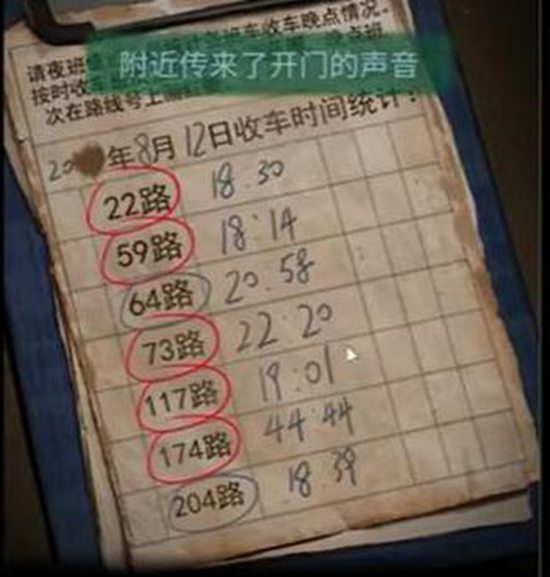 附近传来了开门的声音
请夜班
车收车晚点情况。
按时收
次在路线号上
20 年8月12日收车时间统计：
22路 18:30
59路 18:14
64路 20:58
73路 22:20
117路 19:01
174路 44:44
204路 18:39